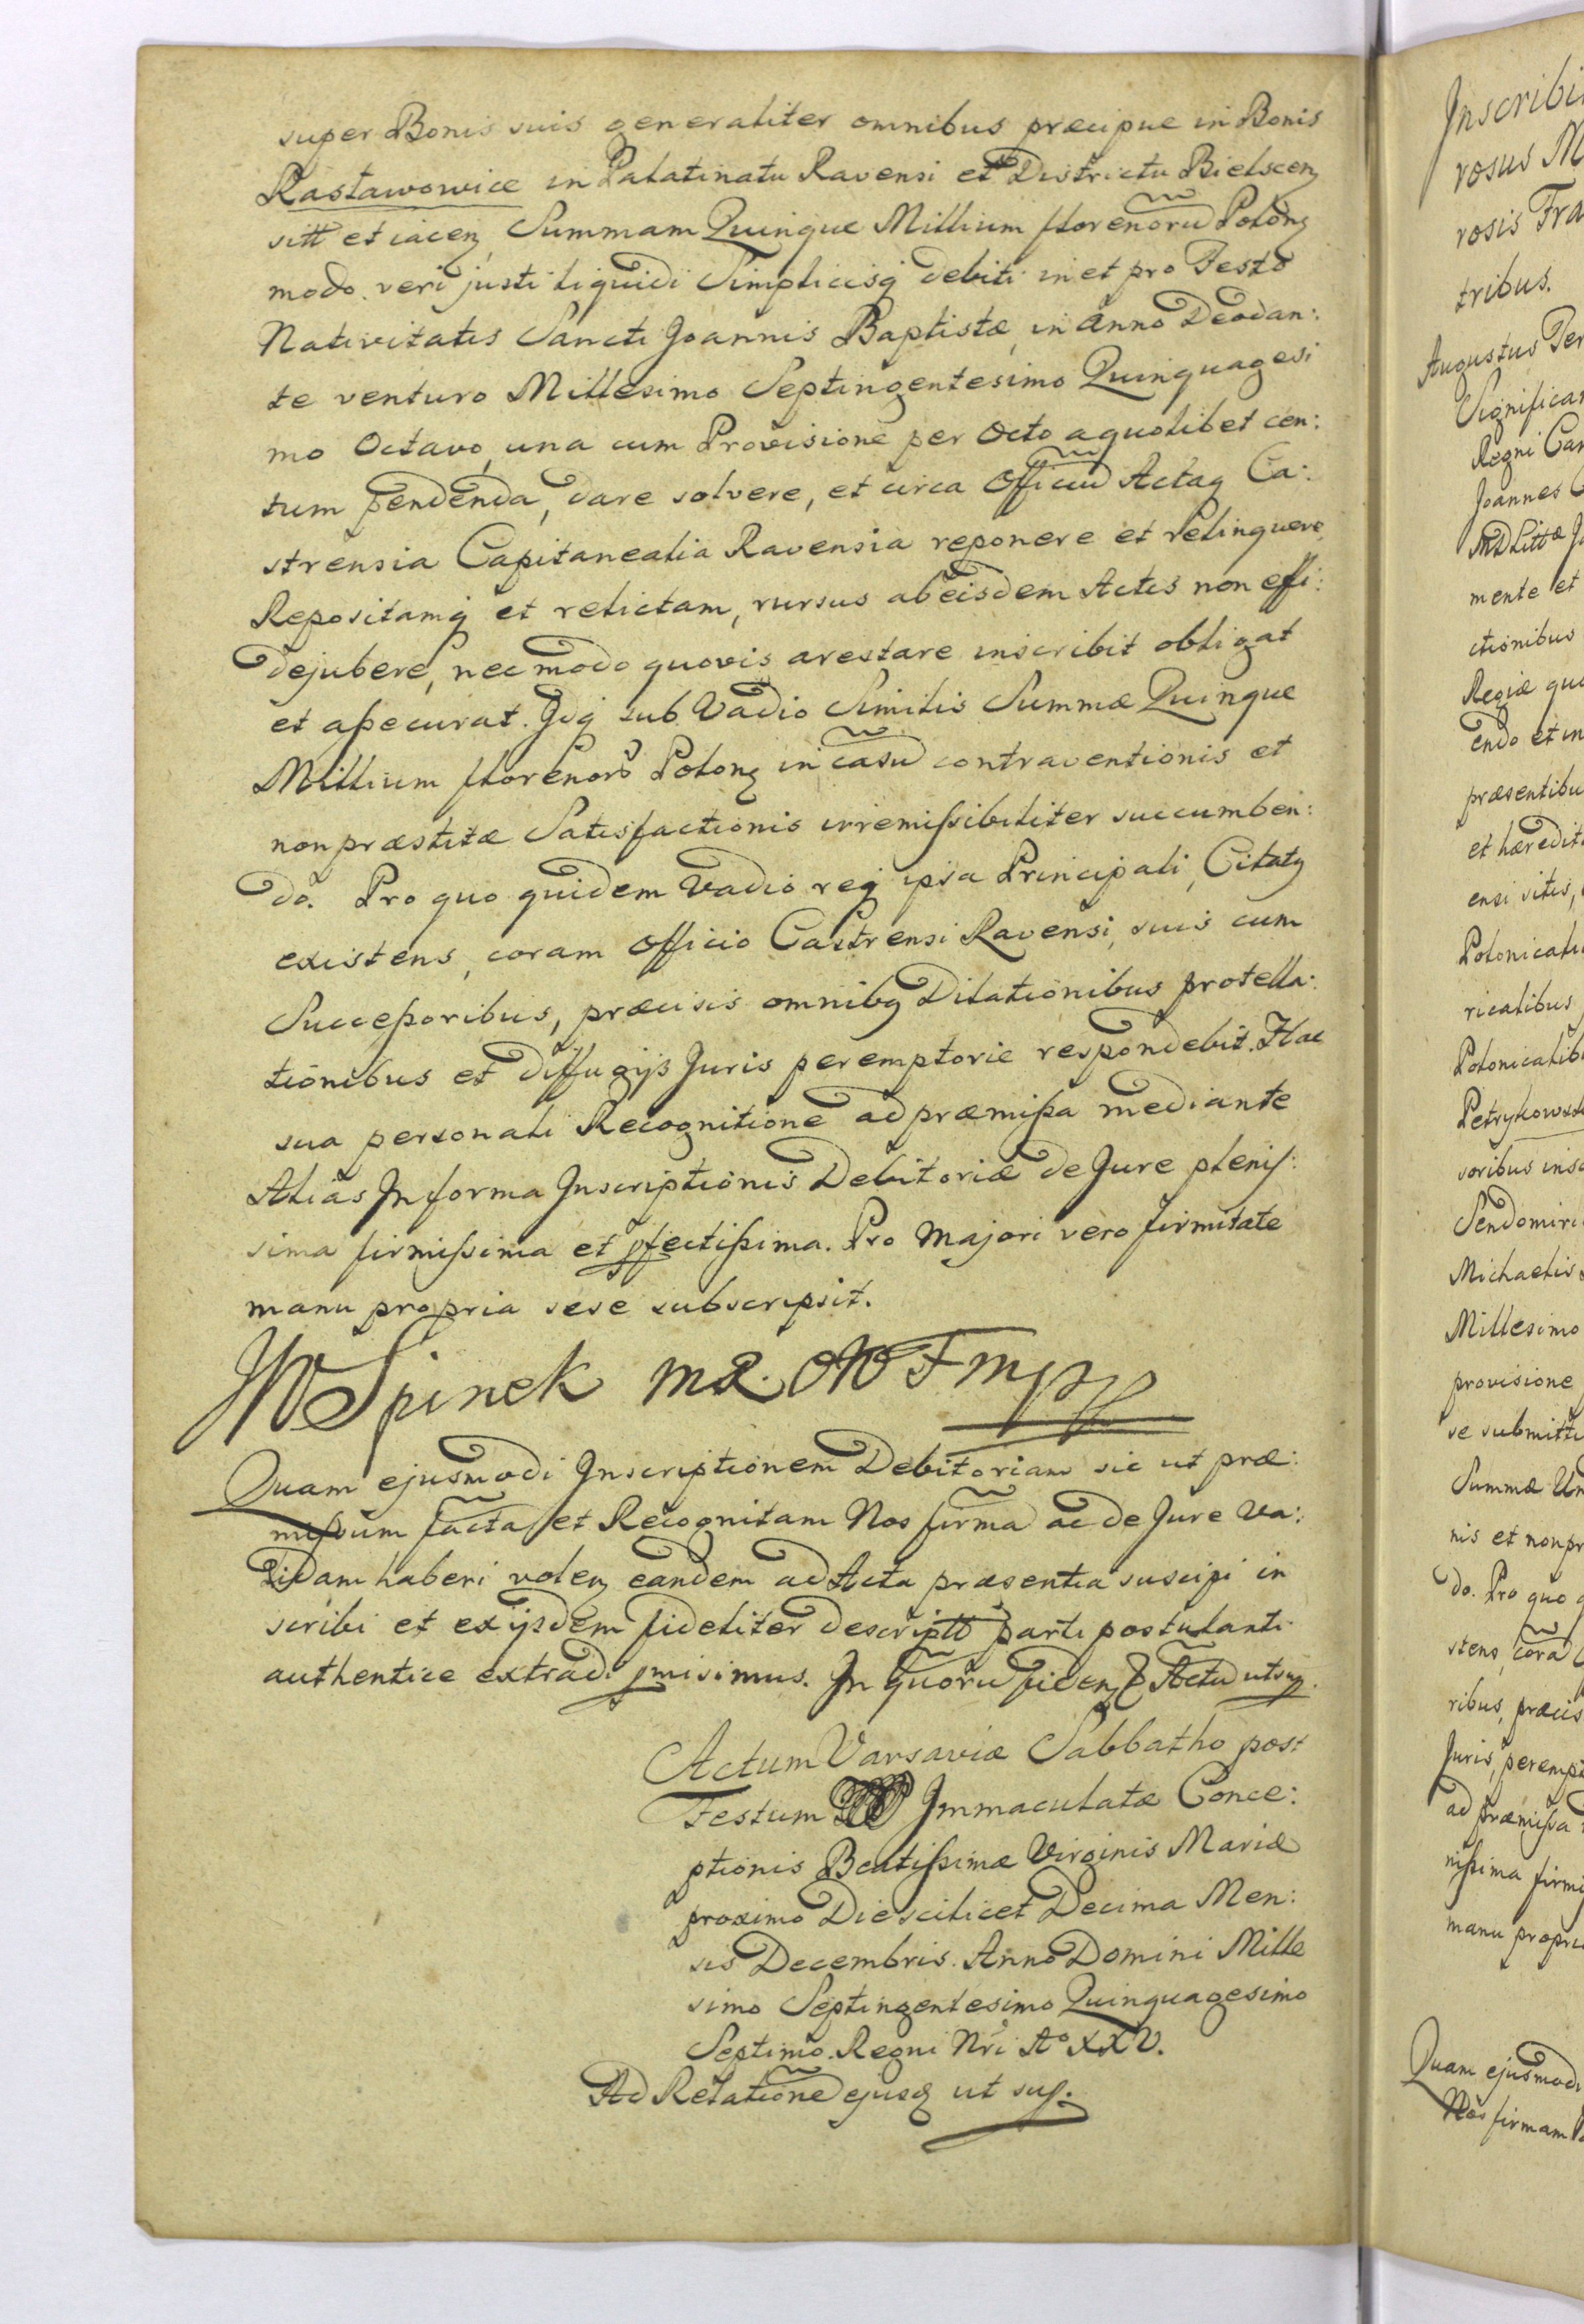 super Bonis suis generaliter omnibus præcipue in Bonis
Rastawowice in Palatinatu Ravensi et Districtu Bielscen
sitt et iacen, Summam Quinque Millium florenorũ Polon
modo veri justi liquidi Simplicisq debiti in et pro Festo
Nativitatis Sancti Joannis Baptistæ, in Anno Deo dan:
te venturo Millesimo Septingentesimo Quinquagesi
mo Octavo, una cum Provisione per Octo a quolibet cen:
tum pendenda, dare solvere, et circa Officiũ Actaq Ca:
strensia Capitanealia Ravensia reponere et relinquere,
Repositamq et relictam, rursus ab eisdem Actis non effi:
dejubere, nec modo quovis arestare inscribit obligat
et aßecurat. Idq sub Vadio Similis Summæ Quinque
Millium florenorũ Polon in casũ contraventionis et
non præstitæ Satisfactionis irremißibiliter succumben:
do. Pro quo quidem Vadio req ipsa Principali, Citatq
existens, coram Officio Castrensi Ravensi, suis cum
Succeßoribus, præcisis omnibq Dilationibus protella:
tionibus et diffugijs Juris peremptorie respondebit. Hac
sua personali Recognitione ad præmißa mediante
Alias In forma Inscriptionis Debitoriæ de Jure plenis:
sima firmißima et pfectißima. Pro Majori vero firmitate
manu propria sese subscripsit.
JWSpinek
Quam ejusmodi Inscriptionem Debitoriam sic ut præ:
mißum factã et Recognitam Nos firmã ac de Jure va:
lidam haberi volen eandem ad Acta præsentia suscipi in
scribi et ex ijsdem fideliter descriptã parti postulanti
authentice extradi pmisimus. In quorũ fidem Actũ ut sup.
Actum Varsaviæ Sabbatho post
Festum Immaculatæ Conce:
ptionis Beatißimæ Virginis Mariæ
proximo Die scilicet Decima Men:
sis Decembris. Anno Domini Mille
simo Septingentesimo Quinquagesimo
Septimo. Regni Nri Aº XXV.
Ad Relationẽ ejusq ut sup.
Inscribi
rosus M
rosis Fra
tribus.
Augustus Ter
Significa
Regni Can
Joannes
mente et
ctionibus
Regiæ qu
endo et in
præsentibu
et hæredit
ensi sitis,
Polonicali
ricalibus
Polonicalib
Petrykows
soribus ins
Sendomiri
Michaelis
Millesimo
provisione
se submitt
Summæ Un
nis et non pr
do. Pro quo
stens, corã
ribus, præcis
Juris, perempt
ad præmißa
nißima firmi
manu propri
Quam ejusmodi
Nos firmam